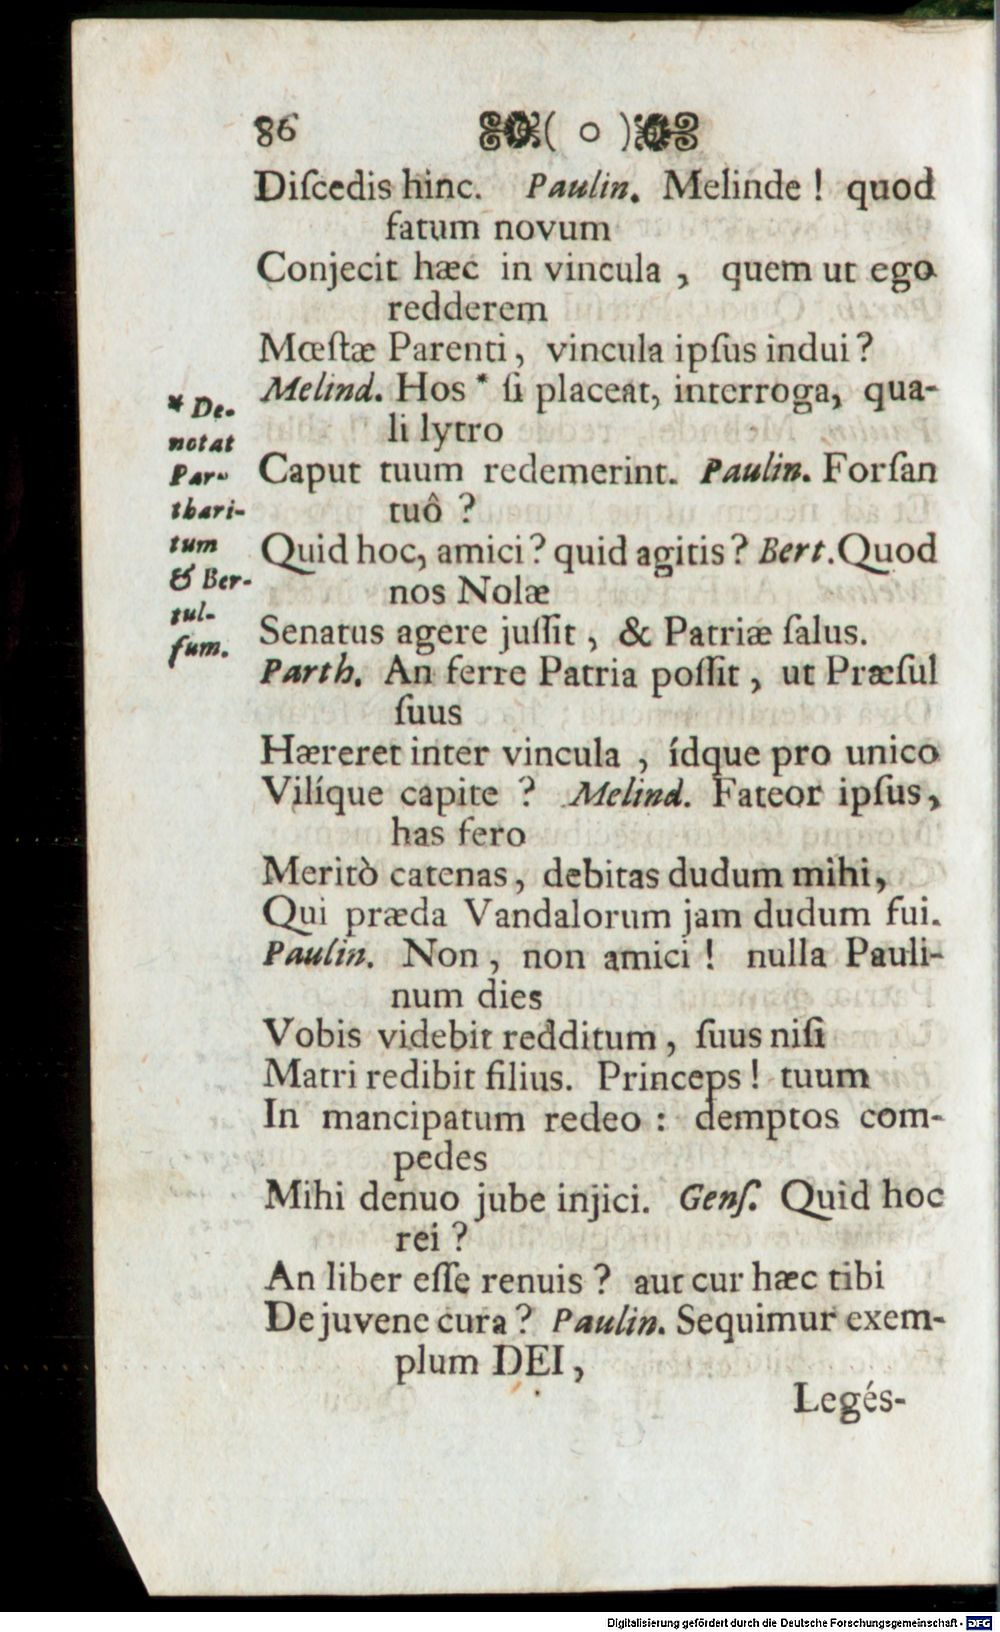 86 ( o )
Diſcedis hinc. Paulin. Melinde! quod
fatum novum
Conjecit hæc in vincula, quem ut ego
redderem
Mœſtæ Parenti, vincula ipſus indui?
Melind. Hos * ſi placeat, interroga, qua-
li lytro
Caput tuum redemerint. Paulin. Forſan
tuô?
Quid hoc, amici? quid agitis? Bert. Quod
nos Nolæ
Senatus agere juſſit, & Patriæ ſalus.
Parth. An ferre Patria poſſit, ut Præſul
ſuus
Hæreret inter vincula, ídque pro unico
Vilíque capite? Melind. Fateor ipſus,
has fero
Meritò catenas, debitas dudum mihi,
Qui præda Vandalorum jam dudum fui.
Paulin. Non, non amici! nulla Pauli-
num dies
Vobis videbit redditum, ſuus niſi
Matri redibit filius. Princeps! tuum
In mancipatum redeo: demptos com-
pedes
Mihi denuo jube injici. Genſ. Quid hoc
rei?
An liber eſſe renuis? aut cur hæc tibi
De juvene cura? Paulin. Sequimur exem-
plum DEI,
Legés-
* De-
notat
Par-
thari-
tum
& Ber-
tul-
fum.
Digitalisierung gefördert durch die Deutsche Forschungsgemeinschaft - DFG